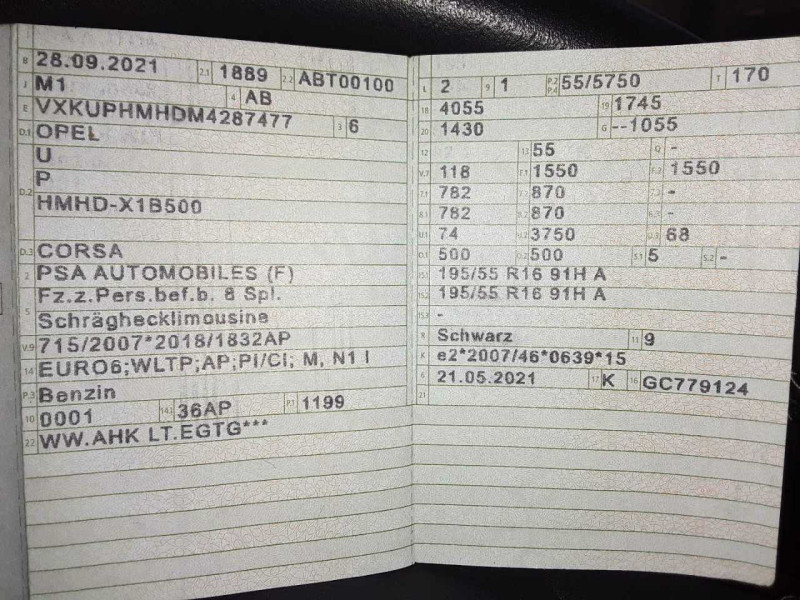 B 28.09.2021 2.1 1889 2.2 ABT00100
J M1 4 AB
E VXKUPHMHDM4287477 3 6
D.1 OPEL
U
D.2 P
HMHD-X1B500
D.3 CORSA
2 PSA AUTOMOBILES (F)
5 Fz.z.Pers.bef.b. 8 Spl.
Schräghecklimousine
V.9 715/2007*2018/1832AP
14 EURO6;WLTP;AP;PI/CI; M, N1 I
P.3 Benzin
10 0001 14.1 36AP P.1 1199
22 WW.AHK LT.EGTG***
L 2 9 1 P.2 P.4 55/5750 T 170
18 4055 19 1745
20 1430 G --1055
12 13 55 Q -
V.7 118 F.1 1550 F.2 1550
7.1 782 7.2 870 7.3 -
8.1 782 8.2 870 8.3 -
U.1 74 U.2 3750 U.3 68
O.1 500 O.2 500 S.1 5 S.2 -
15.1 195/55 R16 91H A
15.2 195/55 R16 91H A
15.3 -
R Schwarz 11 9
K e2*2007/46*0639*15
6 21.05.2021 17 K 16 GC779124
21